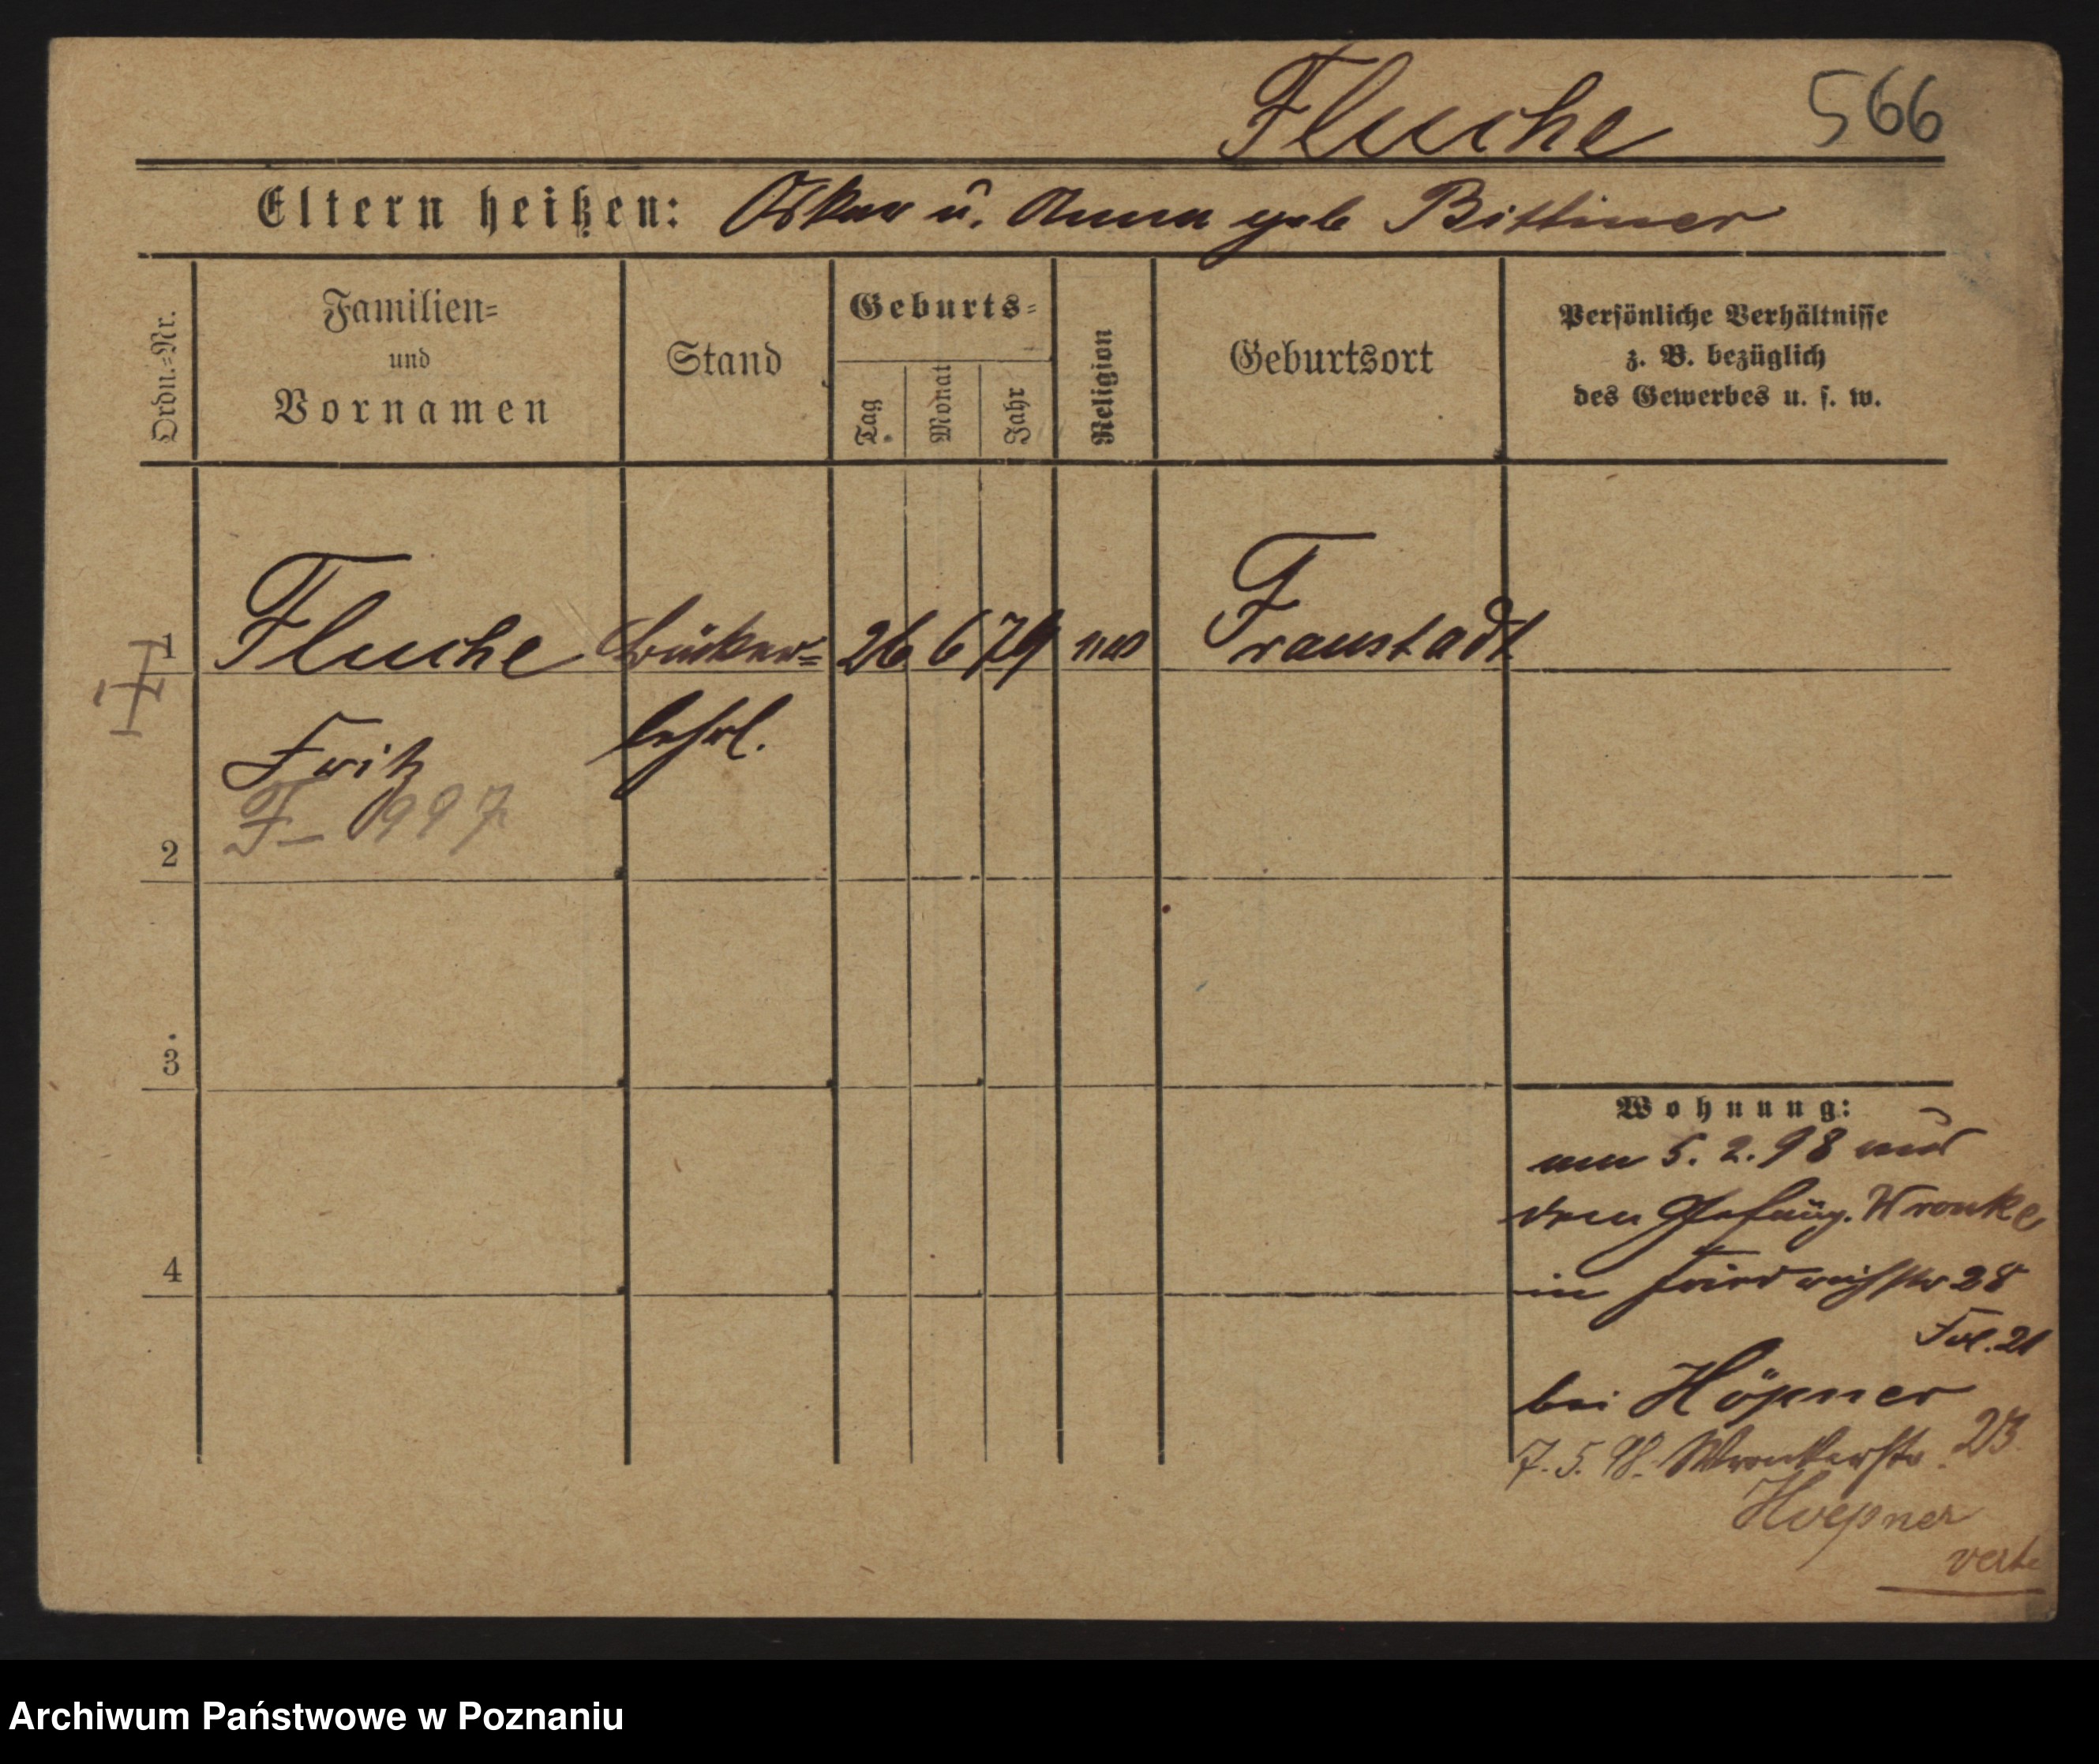 Fluche 566
Eltern heißen: Oskar u. Anna geb Bittiner
Ordn.=Nr.
Familien=
und
Vornamen
Stand
Geburts=
Tag
Monat
Jahr
Religion
Geburtsort
Persönliche Verhältnisse
z. B. bezüglich
des Gewerbes u. s. w.
1 Fluche 26 6 79 Fraustadt
Fritz lehrl.
F- 997
2
3
4
Wohnung:
5. 2. 98 aus
dem Gefäng. Wronke
in Friedrichstr 28
bei Höpner
7. 5. 98. Wronkerstr. 23
Hoepner
verte
Archiwum Państwowe w Poznaniu